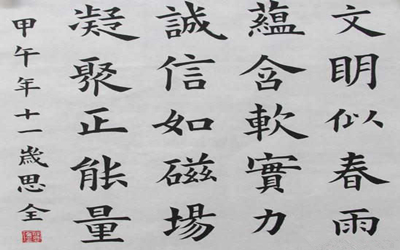 文明似春雨
蘊含軟實力
誠信如磁場
凝聚正能量
甲午年十一歲思全